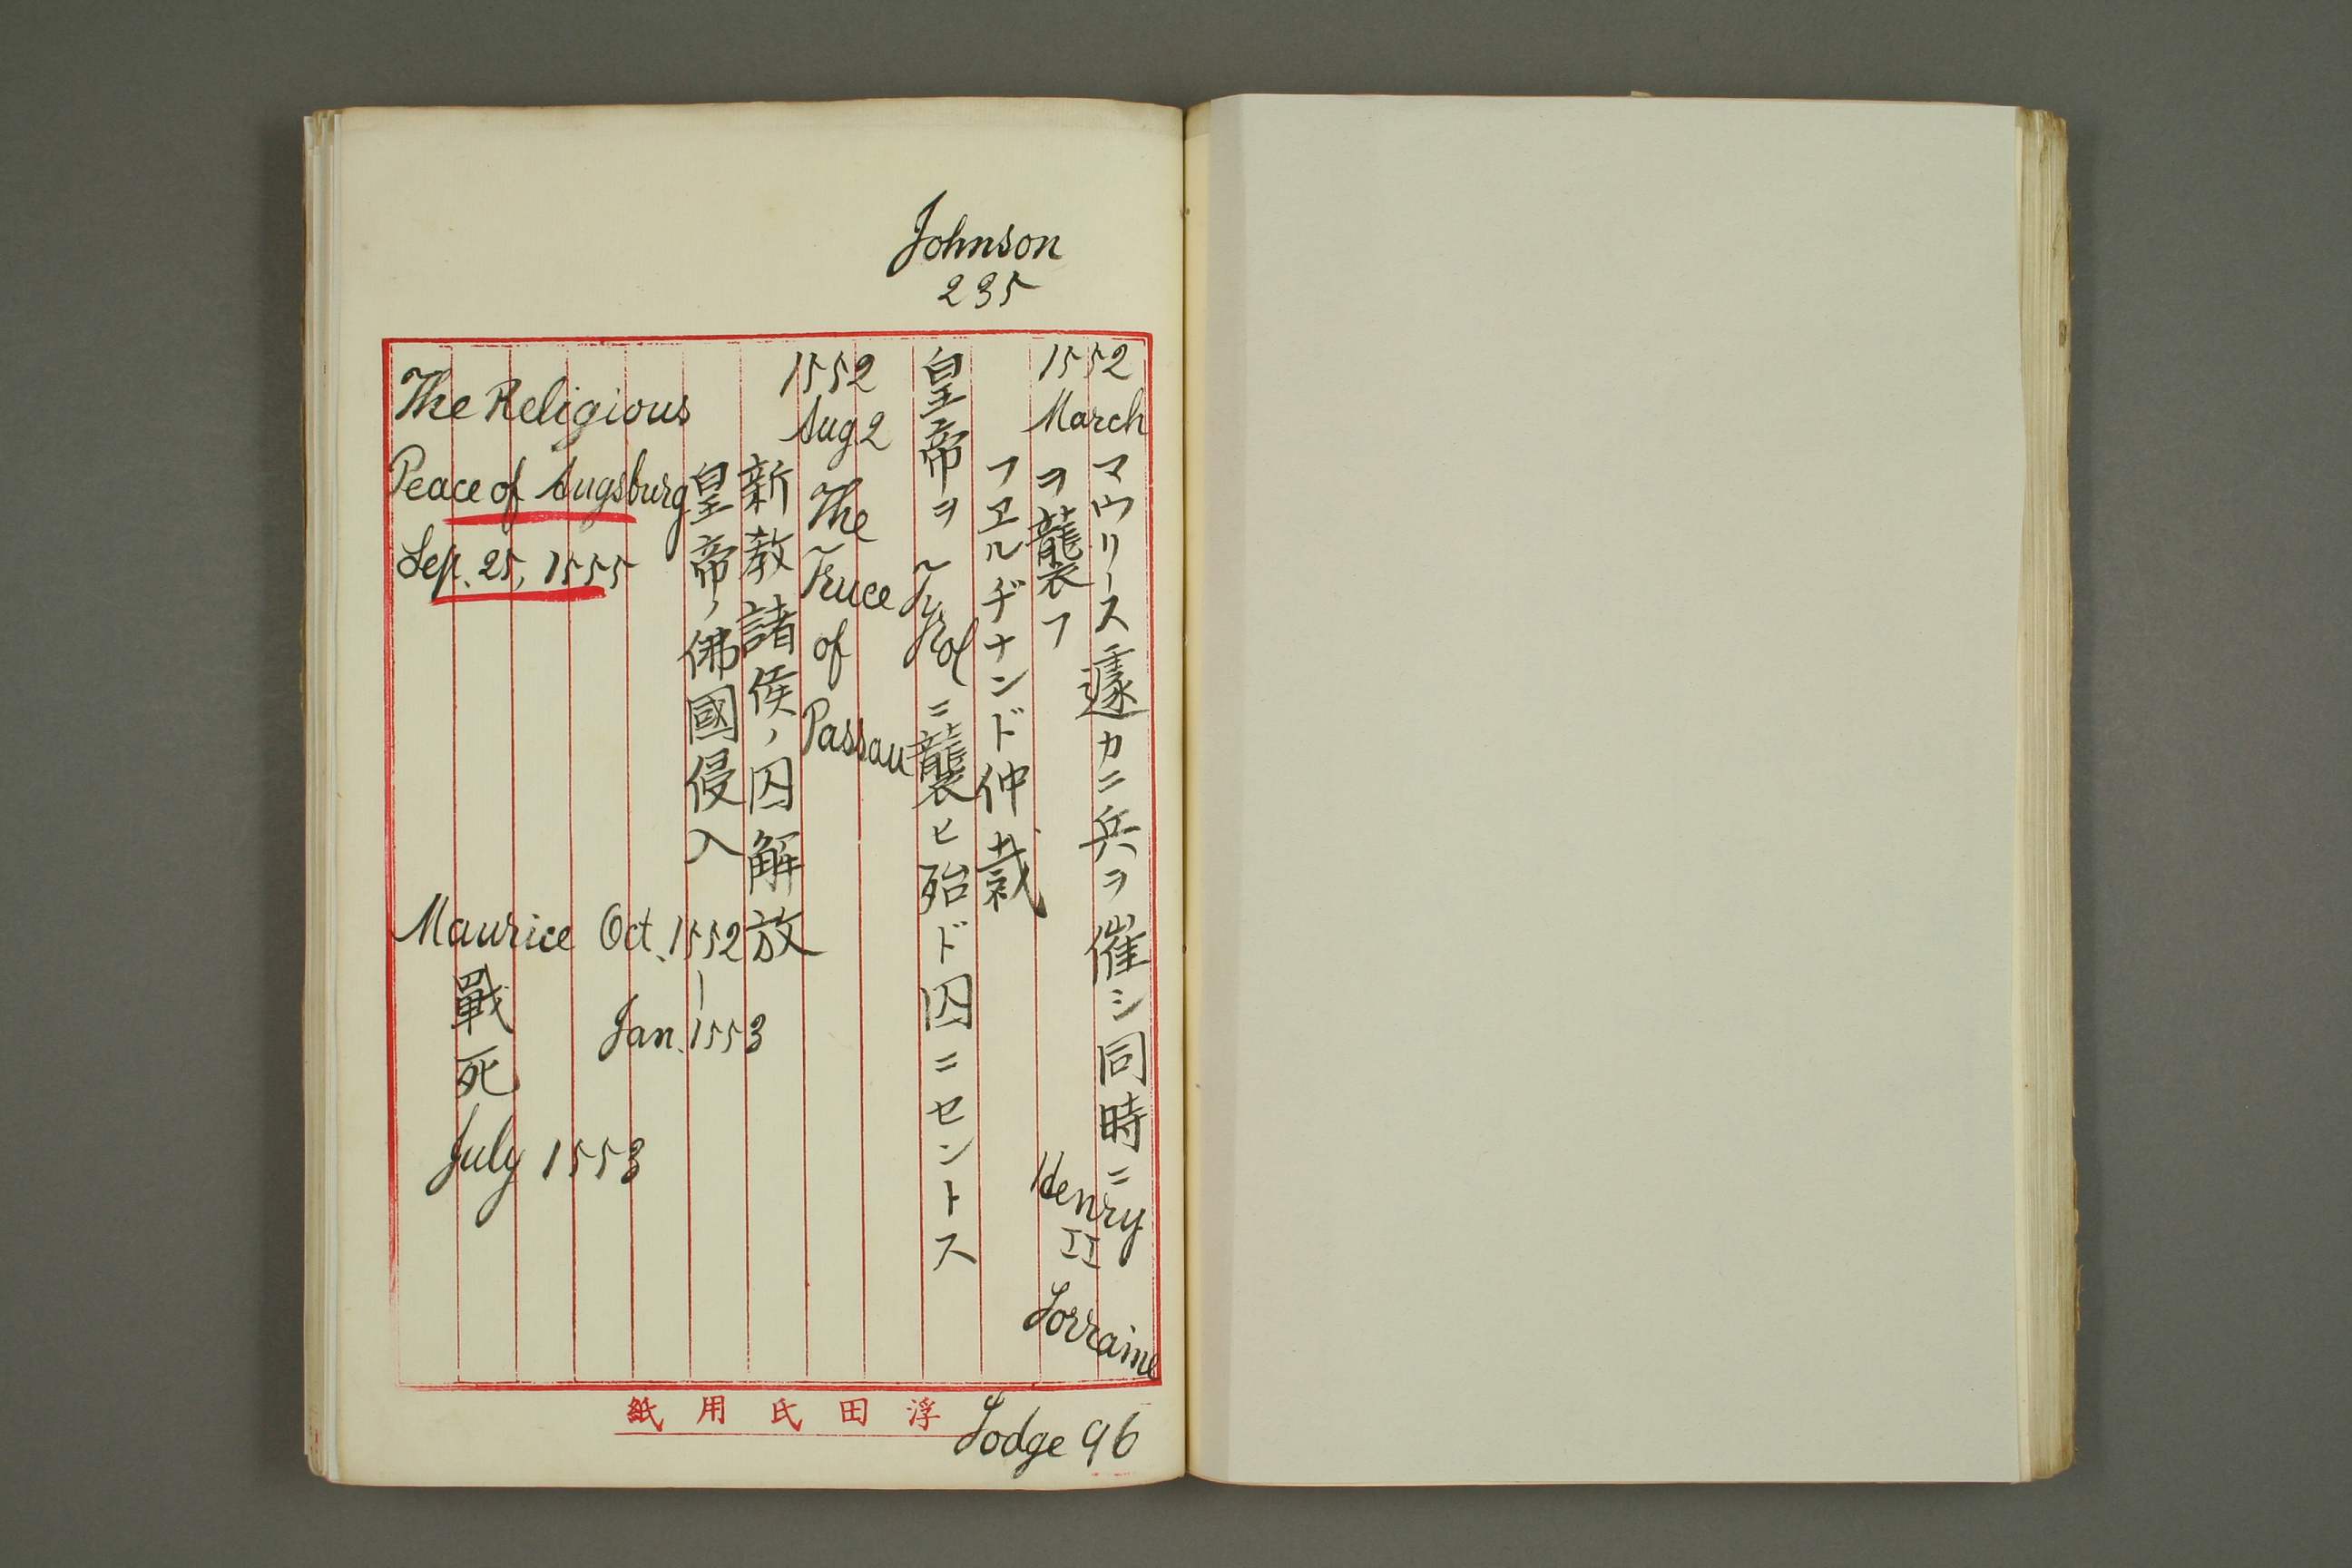 Johnson
235
1552
March
マウリース遽カニ兵ヲ催シ同時ニ
Henry
II
Lorraine
ヲ襲フ
フエルヂナンド仲裁
皇帝ヲTyrolニ襲ヒ殆ド囚ニセントス
1552
Aug 2
The
Truce
of
Passau
新教諸侯ノ囚解放
皇帝ノ佛國侵入
Oct. 1552
|
Jan. 1553
The Religious
Peace of Augsburg
Sep. 25, 1555
Maurice
戰死
July 1553
浮田氏用紙
Lodge 96